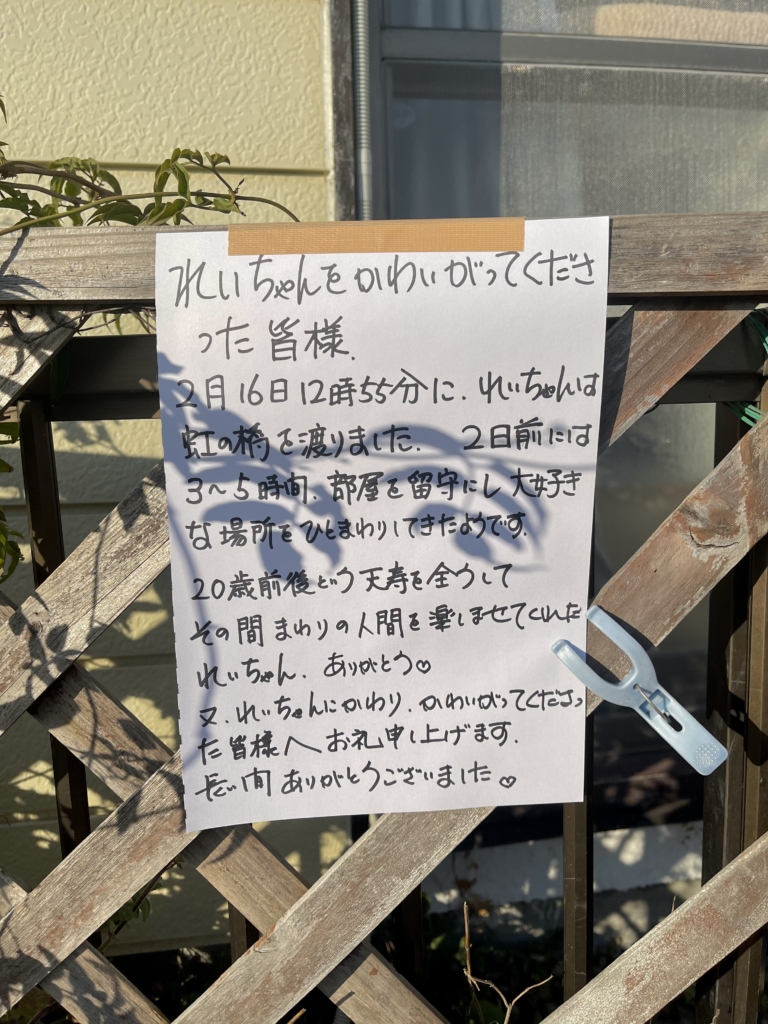 れいちゃんをかわいがってくださ
った皆様.
2月16日12時55分に. れいちゃんは
虹の橋を渡りました. 2日前には
3〜5時間. 部屋を留守にし大好き
な場所をひとまわりしてきたようです.
20歳前後という天寿を全うして
その間まわりの人間を楽しませてくれた
れいちゃん. ありがとう♡
又. れいちゃんにかわり. かわいがってくださっ
た皆様へお礼申し上げます.
長い間ありがとうございました♡